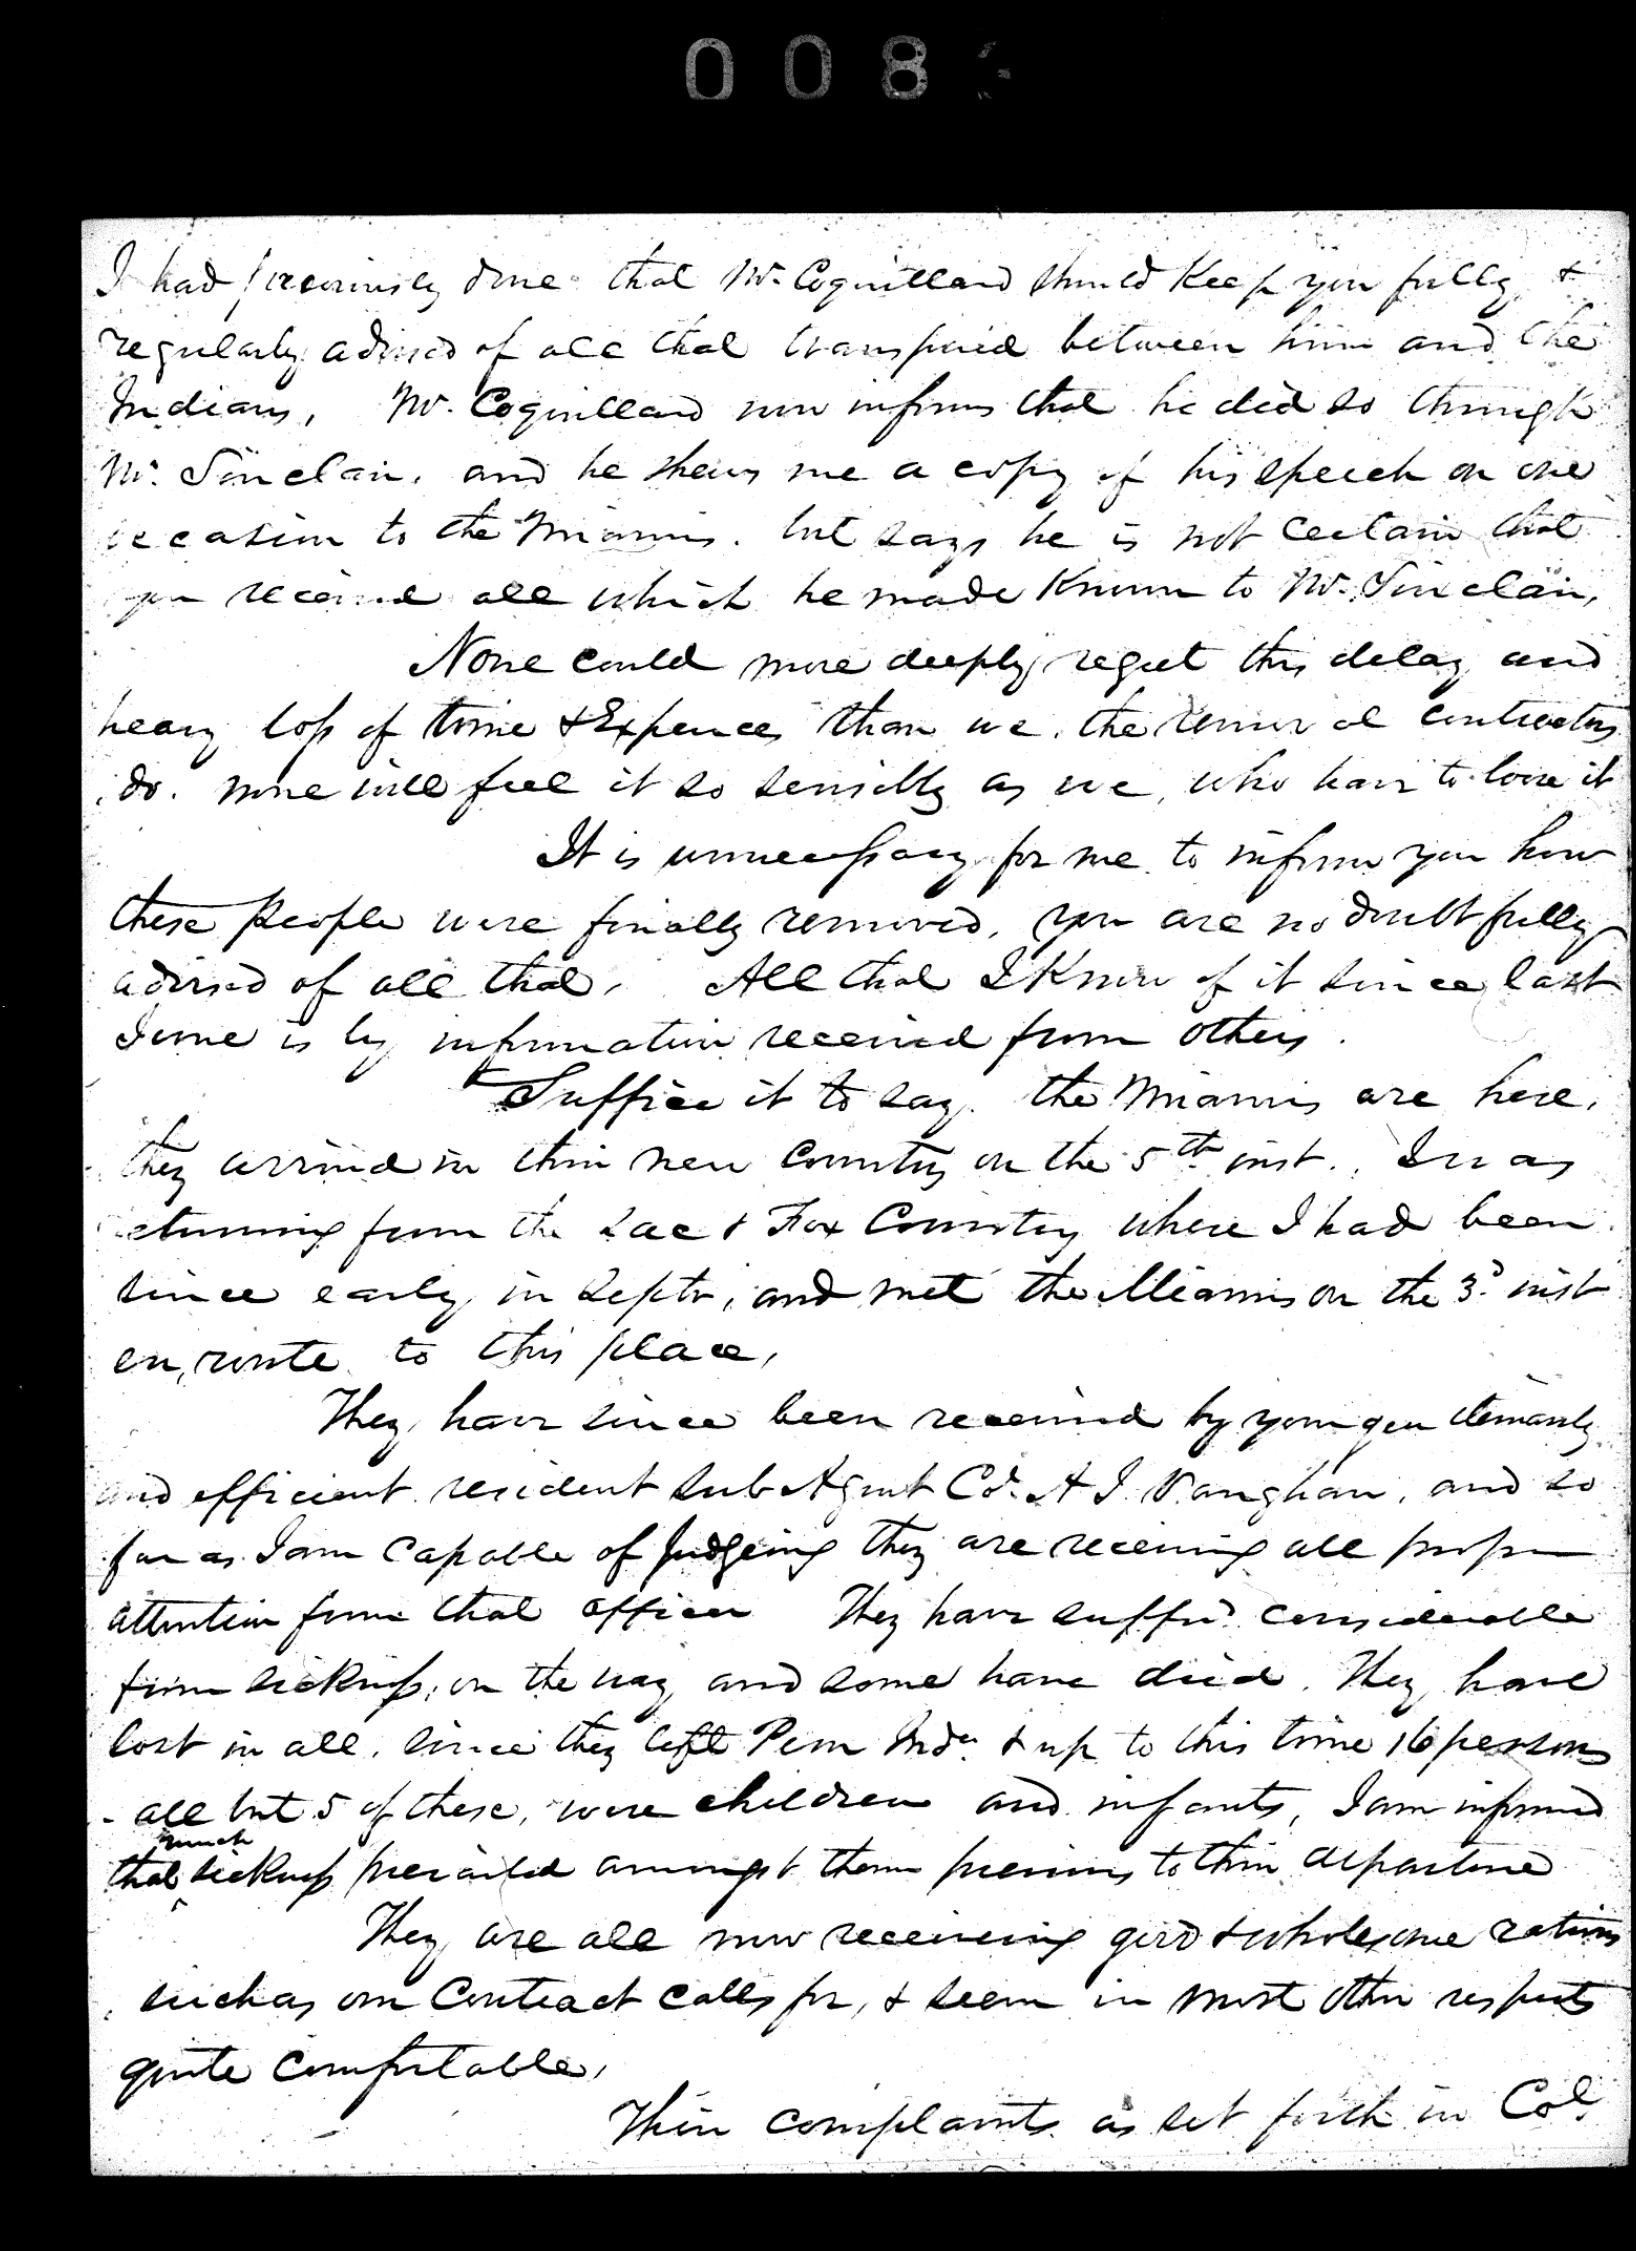 008
I had previously done that Mr. Coquillard should Keep you fully &
regularly advised of all that transpired between him and the
Indians, Mr. Coquillard now informs that he did so through
Mr. Sinclair, and he shews me a copy of his speech on one
occasion to the Miamis. but says he is not Certain that
you received all which he made Known to Mr. Sinclair,
None could more deeply regret this delay and
heavy loss of time & Expences than we, the removal contractors
do. none will feel it so sensibly as we, who have to loose it
It is unnecessary for me to inform you how
these People were finally removed, you are no doubt fully
advised of all that, All that I Know of it since last
June is by information received from others.
Suffice it to say. the Miamis are here,
they arrived in thier new Country on the 5th inst. I was
returning from the Sac & Fox Country where I had been
since early in Septr, and met the Miamis on the 3d inst
en, route to this place,
They have since been received by your gentlemanly
and efficient resident Sub Agent Col. A J. Vaughan, and so
far as I am Capable of Judgeing they are receiving all proper
attention from that officer They have suffrd considerable
from sickness, on the way and some have died. They have
lost in all, since they left Peru Inda & up to this time 16 persons
- all but 5 of these, were children and infants, I am informed
that much sickness prevailed amongst them previous to thier departure
They are all now receiveing good & wholesome rations
such as our Contract calls for, & seem in most other respects
quite comfortable,
Thier complaints as set forth in Col.